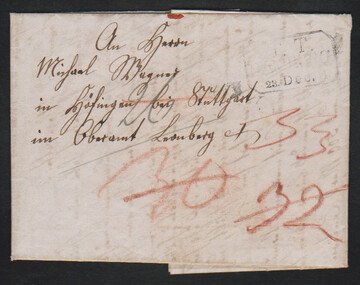 An Herrn
Michael Wagner
in Höfingen bei Stuttgart
im Oberamt Leonberg
33
30
32